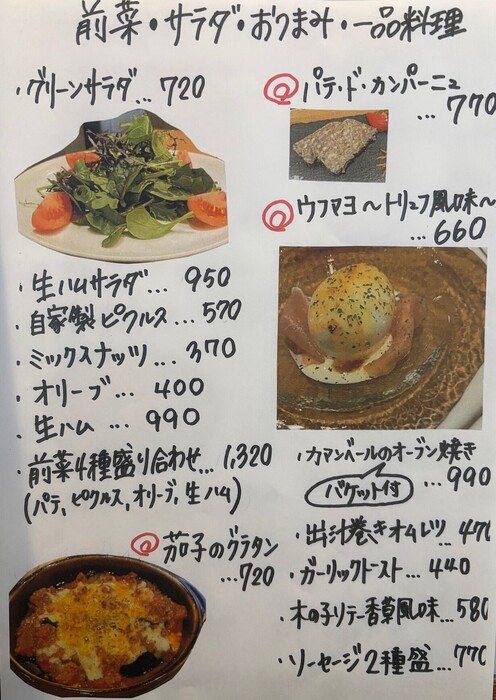 前菜・サラダ・おつまみ・一品料理
・グリーンサラダ…720
・生ハムサラダ…950
・自家製ピクルス…570
・ミックスナッツ…370
・オリーブ…400
・生ハム…990
・前菜4種盛り合わせ…1,320
(パテ,ピクルス,オリーブ,生ハム)
◎茄子のグラタン
…720
◎パテ・ド・カンパーニュ
…770
◎ウフマヨ〜トリュフ風味〜
…660
・カマンベールのオーブン焼き
バケット付
…990
・出汁巻きオムレツ…470
・ガーリックトースト…440
・木の子ソテー香草風味…580
・ソーセージ2種盛…770